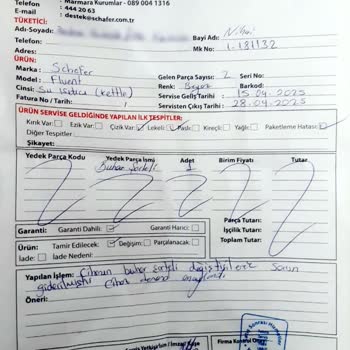 Telefon : Marmara Kurumlar - 089 004 1316
E-mail : 444 20 63
destek@schafer.com.tr
TÜKETİCİ
Adı-Soyadı: Bayi Adı: Nihai
Telefon: Mk No: 1-181132
Adres:
ÜRÜN:
Marka : Schafer Gelen Parça Sayısı: 2 Seri No:
Model : Fluent Renk: Beyaz Barkod:
Cinsi: Su Isıtıcı (kettle) Servise Geliş Tarihi : 15.04.2025
Fatura No / Tarih: / Servisten Çıkış Tarihi: 28.04.2025
ÜRÜN SERVİSE GELDİĞİNDE YAPILAN İLK TESPİTLER:
Kırık Var: Ezik Var: Çizik Var: Lekeli: Paslı: Kireçli: Yağlı: Paketleme Hatası:
Diğer Tespitler:
Şikayet:
Yedek Parça Kodu Yedek Parça İsmi Adet Birim Fiyatı Tutar
Buhar Şarteli 1
Parça Tutar:
İşçilik Tutar:
Toplam Tutar:
Garanti: Garanti Dahili: Garanti Harici:
Ürün: Tamir Edilecek: Değişim: Parçalanacak:
İade: İade Nedeni:
Yapılan İşlem: Cihazın buhar şarteli değiştirilerek sorun
giderilmiştir cihaz
Öneri:
Firma Kontrol